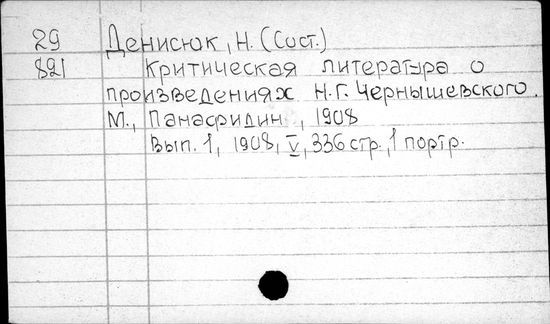 29 Денисюк, Н. (Сост.)
821 Критическая литература о
произведениях Н.Г. Чернышевского.
М., Панасридин, 1908
Вып. 1, 1908, V, 336 стр., 1 портр.